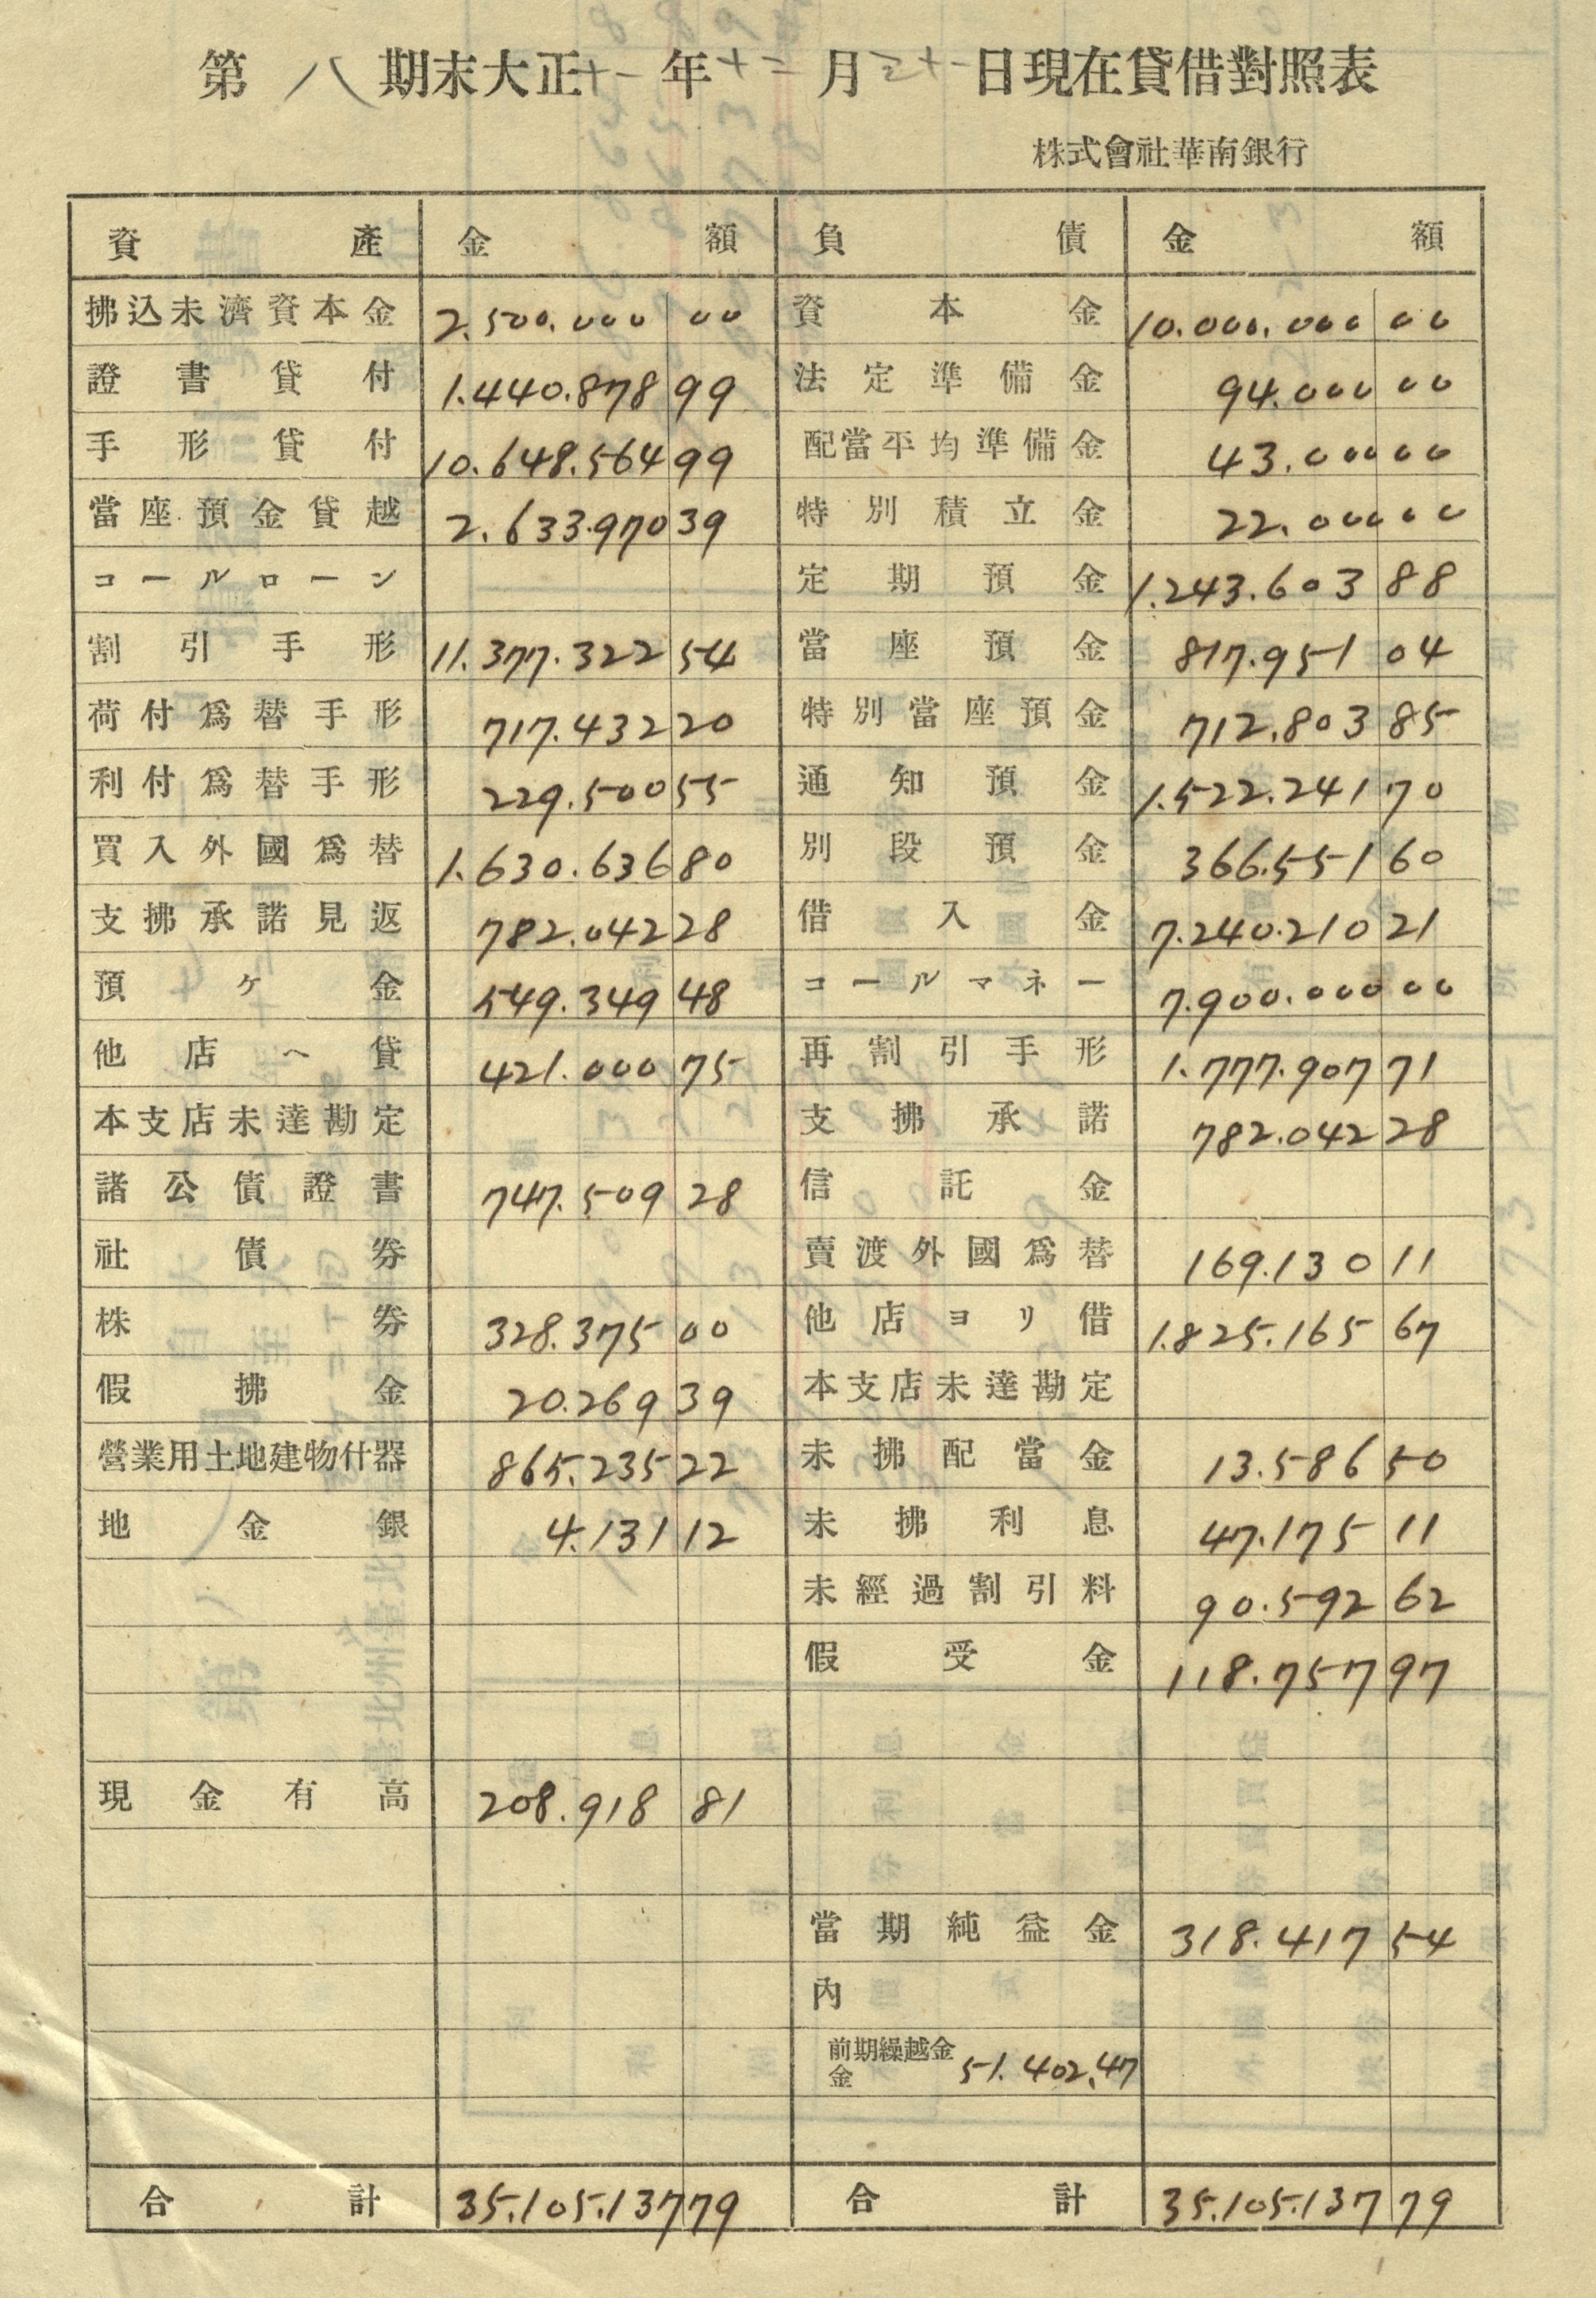 第八期末大正十一年十二月三十一日現在貸借對照表
株式會社華南銀行
資產 金額 負債 金額
拂込未濟資本金 2.500.000 00 資本金 10.000.000 00
證書貸付 1.440.878 99 法定準備金 94.000 00
手形貸付 10.648.564 99 配當平均準備金 43.000 00
當座預金貸越 2.633.970 39 特別積立金 22.000 00
コールローン 定期預金 1.243.603 88
割引手形 11.377.322 54 當座預金 817.951 04
荷付爲替手形 717.432 20 特別當座預金 712.803 85
利付爲替手形 229.500 55 通知預金 1.522.241 70
買入外國爲替 1.630.636 80 別段預金 366.551 60
支拂承諾見返 782.042 28 借入金 7.240.210 21
預ケ金 549.349 48 コールマネー 7.900.000 00
他店へ貸 421.000 75 再割引手形 1.777.907 71
本支店未達勘定 支拂承諾 782.042 28
諸公債證書 747.509 28 信託金
社債券 賣渡外國爲替 169.130 11
株券 328.375 00 他店ヨリ借 1.825.165 67
假拂金 20.269 39 本支店未達勘定
營業用土地建物什器 865.235 22 未拂配當金 13.586 50
地金銀 4.131 12 未拂利息 47.175 11
未經過割引料 90.592 62
假受金 118.757 97
現金有高 208.918 81
當期純益金 318.417 54
內
前期繰越金
金 51.402.47
合計 35.105.137 79 合計 35.105.137 79